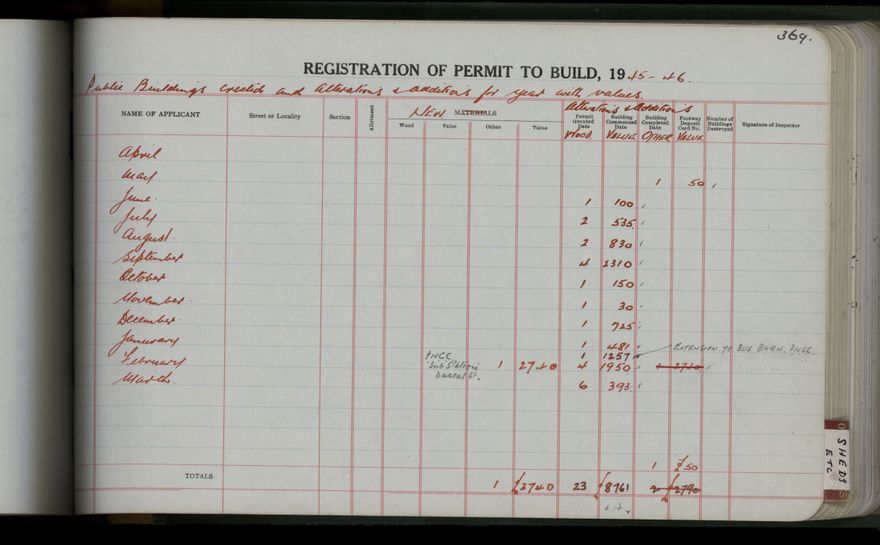 369.
REGISTRATION OF PERMIT TO BUILD, 1945-46.
Public Buildings erected and alterations & additions for year with values.
NAME OF APPLICANT
Street or Locality
Section
Allotment
NEW MATERIALS
Wood
Value
Other
Value
Alterations & Additions
Permit Granted Date
Building Commenced Date
Building Completed Date
Footway Deposit Card No.
Number of Buildings Destroyed
Signature of Inspector
WOOD VALUE OTHER VALUE
April
May 1 50
June 1 100
July 2 535
August 2 830
September 4 2310
October 1 150
November 1 30
December 1 725
Januuary 1 481
1 1257 EXTENSION TO BUS BARN. PNCC.
February PNCC Sub Station 1 2740 4 1950 1 2740
March 6 393
1 £50
TOTALS 1 £2740 23 £8761 2 £2790
SHEDS
ETC